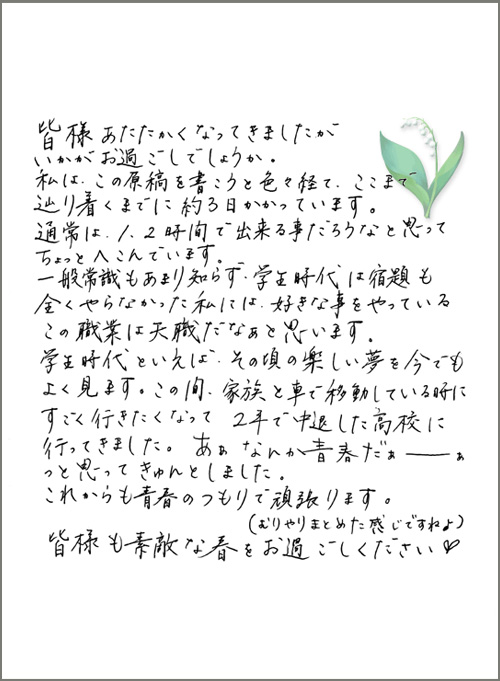 皆様 あたたかくなってきましたが
いかがお過ごしでしょうか。
私は、この原稿を書こうと色々経て、ここまで
辿り着くまでに約3日かかっています。
通常は、1、2時間で出来る事だろうなと思って
ちょっとへこんでいます。
一般常識もあまり知らず、学生時代は宿題も
全くやらなかった私には、好きな事をやっている
この職業は天職だなぁと思います。
学生時代といえば、その頃の楽しい夢を今でも
よく見ます。この間、家族と車で移動している時に
すごく行きたくなって 2年で中退した高校に
行ってきました。 あぁ なんか青春だぁーーぁ
っと思って きゅんとしました。
これからも青春のつもりで頑張ります。
(むりやりまとめた感じですねよ)
皆様も素敵な春をお過ごしください♡